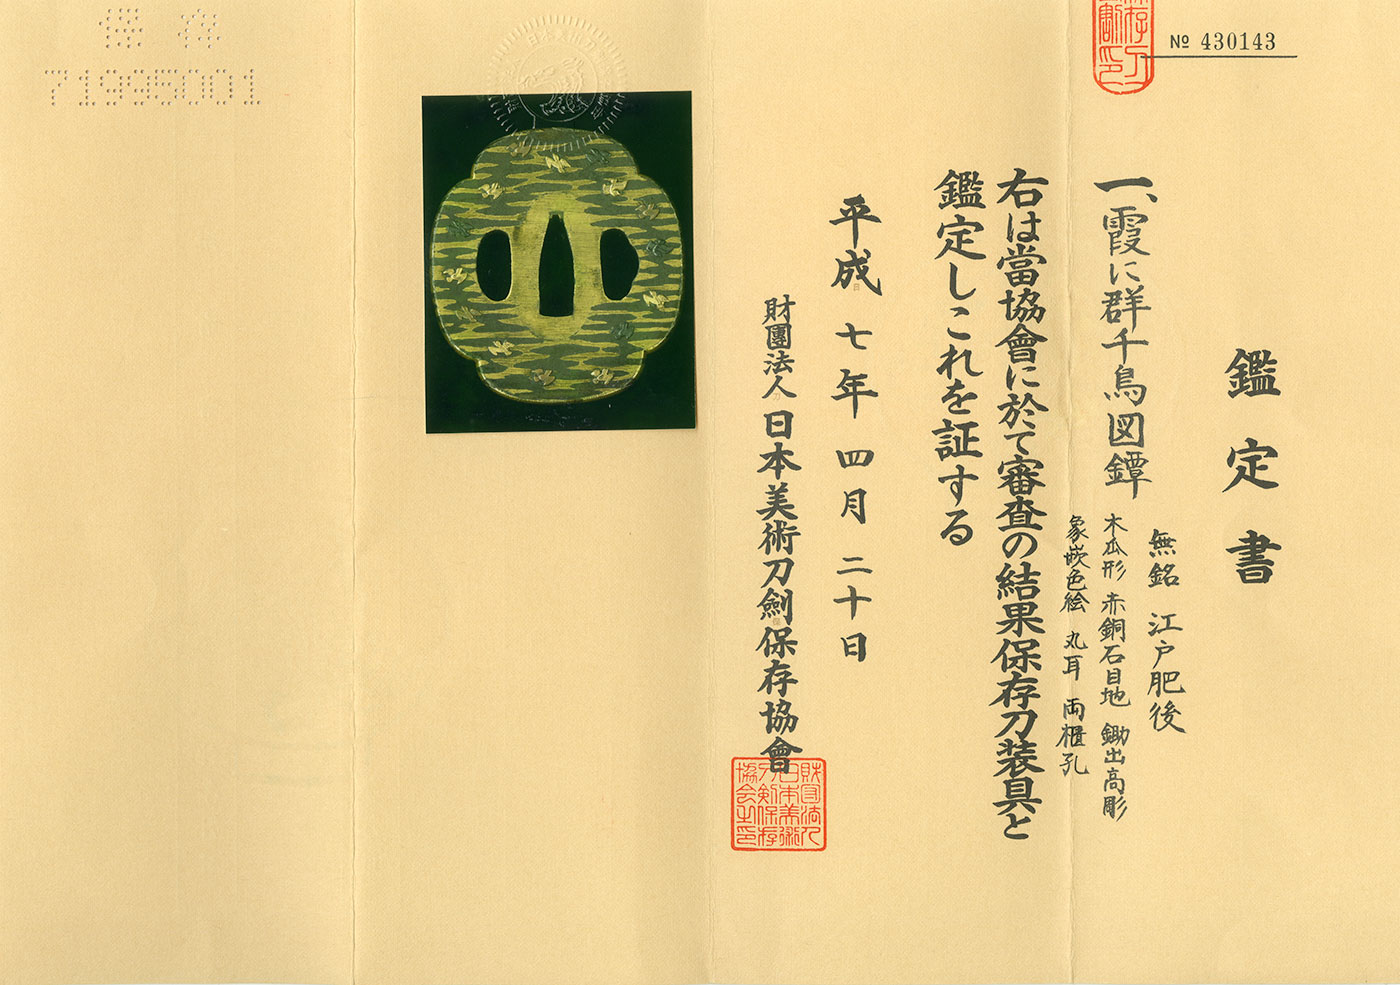 № 430143
鑑定書
一、霞に群千鳥図鐔
無銘 江戸肥後
木瓜形 赤銅石目地 鋤出高彫
象嵌色絵 丸耳 両櫃孔
右は當協會に於て審査の結果保存刀装具と
鑑定しこれを証する
平成七年四月二十日
財團法人 日本美術刀劍保存協會
財団法人
日本美術
刀剣保存
協会之印
保存
71995001